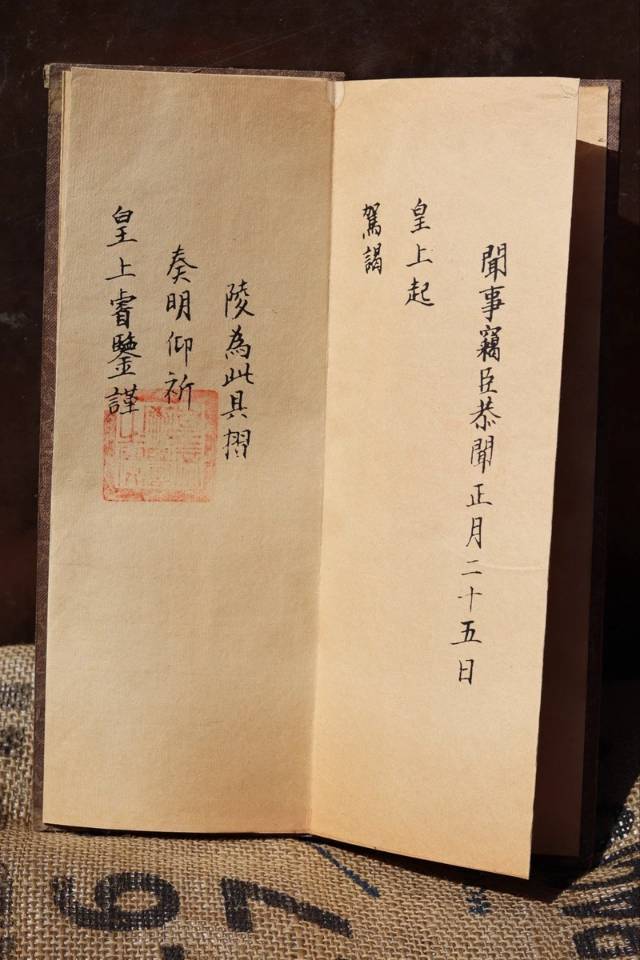 聞事竊臣恭聞正月二十五日
皇上起
駕謁
陵為此具摺
奏明仰祈
皇上睿鑒謹
97